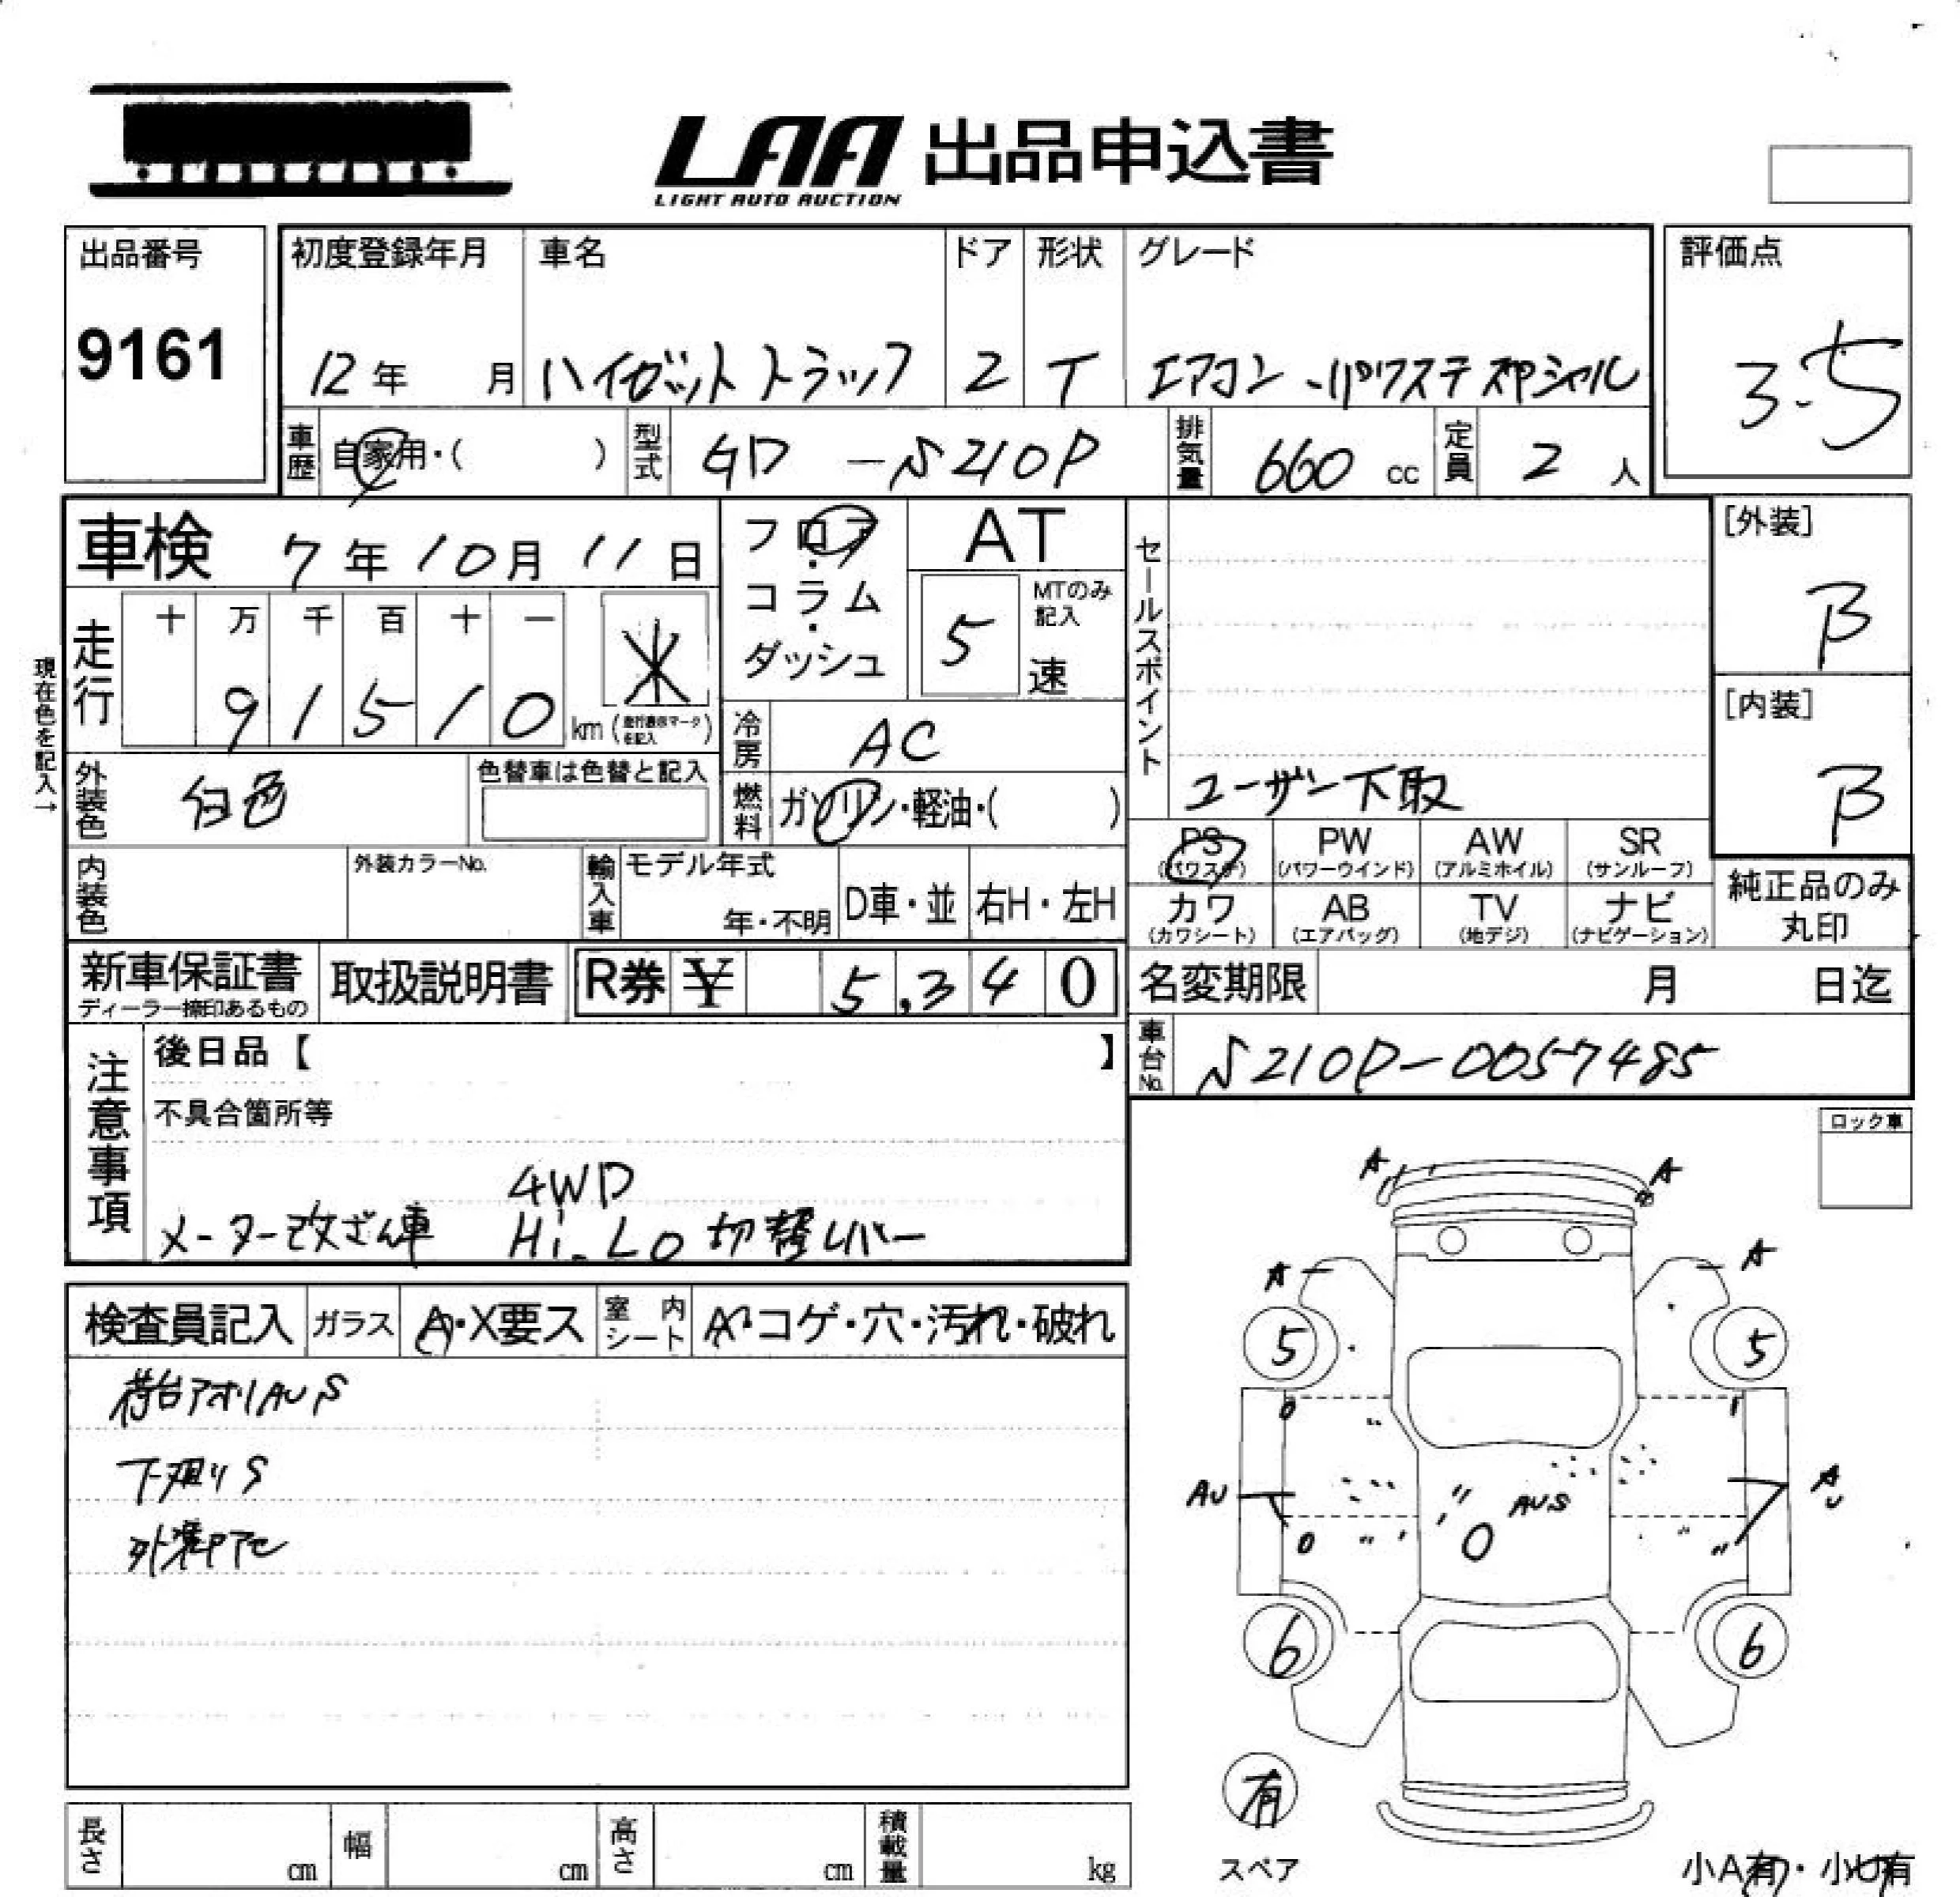 LAA 出品申込書
LIGHT AUTO AUCTION
出品番号
9161
初度登録年月
12年 月
車名
ハイゼットトラック
ドア
2
形状
T
グレード
エアコン・パワステスペシャル
評価点
3.5
車歴 自家用・( )
型式 GD-S210P
排気量 660 cc
定員 2 人
車検 7年10月11日
フロア・コラム・ダッシュ
AT
5
MTのみ記入
速
セールスポイント
ユーザー下取
[外装]
B
[内装]
B
現在色を記入→
走行 十 万 千 百 十 一
9 1 5 1 0 km (走行表示マークを記入)
*
冷房 AC
燃料 ガソリン・軽油・( )
外装色 白色
色替車は色替と記入
内装色
外装カラーNo.
輸入車
モデル年式
年・不明
D車・並
右H・左H
PS (パワステ)
PW (パワーウインド)
AW (アルミホイル)
SR (サンルーフ)
カワ (カワシート)
AB (エアバッグ)
TV (地デジ)
ナビ (ナビゲーション)
純正品のみ
丸印
新車保証書
ディーラー捺印あるもの
取扱説明書
R券 ¥ 5,340
名変期限 月 日迄
車台No. S210P-0057485
注意事項
後日品【 】
不具合箇所等
4WD
メーター改ざん車 Hi-Lo 切替レバー
ロック車
検査員記入
ガラス
A・X要ス
室内シート
A・コゲ・穴・汚れ・破れ
荷台アオリAUS
下廻りS
A
A
A
A
5
5
AU
AUS
AU
6
6
有
スペア
小A有・小U有
長さ cm
幅 cm
高さ cm
積載量 kg